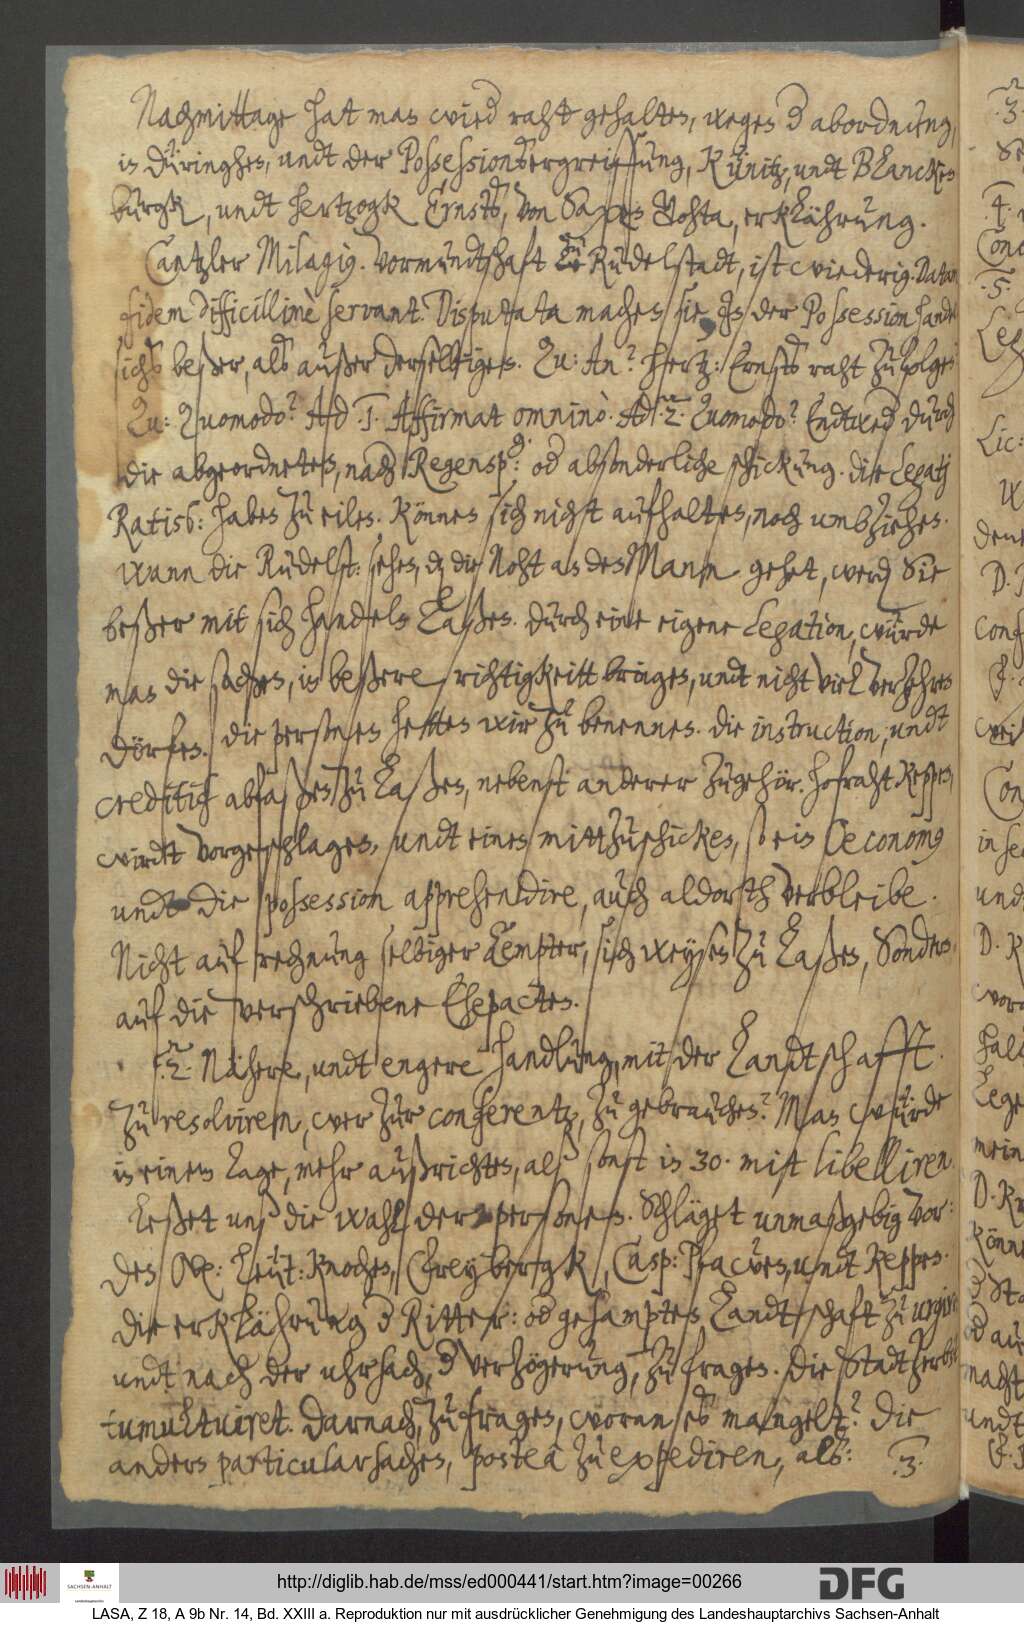 Nachmittage hat man wied raht gehalten, wegen d abordnung,
in Düringhen, undt der Possessionsergreiffung, Künitz, undt Blancken
burgk, undt Hertzogk Ernsts, von Saxen Gohta, erklährung.
Cantzler Milagius. Vormundtschaft zu Rudelstadt, ist wiederig. Datam
fidem difficillimè servant. Disputata machen sie. In der Possession handelt
sichs beßer, als außer derselbigen. Zu: An? Hertz: Ernsts raht zu folgen
Zu: Quomodo? Ad .1. Affirmat omninò. Ad .2. Quomodo? Endtwed durch
die abgeordneten, nach Regensp: od absonderliche schickung. die Legatj
Ratisb: haben zu eilen. Können sich nicht aufhalten, noch umbziehen.
Wann die Rudelst: sehen, dz die Noht an den Mann gehet, werd Sie
beßer mit sich handeln laßen. Durch eine eigene Legation, würde
man die sachen, in beßere richtigkeitt bringen, undt nicht viel verzehren
dörfen. die personen hetten wir zu benennen. die instruction, undt
creditif abfaßen zu laßen, nebenst anderer zugehör. Hofraht Keppen,
wirdt vorgeschlagen, undt einen mittzuschicken, so ein Oeconomus
undt die possession apprehendire, auch aldorth verbleibe.
Nicht auf rechnung selbiger Aempter, sich weysen zu laßen, Sondern,
auf die verschriebene Ehepacten.
.2. Nähere, undt engere handlung, mit der Landtschafft.
Zu resolviren, wer zur conferentz, zu gebrauchen? Man würde
in einem Tage, mehr außrichten, alß sonst in 30. mitt libelliren.
Leßet unß die wahl der personen. Schläget unmaßgebig vor:
den Ob: Leut: Knochen, Freybergk, Casp: Pfawen, undt Keppen.
die erklährung d Ritter: od gesampten Landtschaft zu urgiren
undt nach der uhrsach, d verhögerung, zu fragen. Die Stadt Zerbst
tumultuiret. Darnach, zu fragen, woran es mangelt? Die
andern particularsachen, postea zu expediren, als: .3.
http://diglib.hab.de/mss/ed000441/start.htm?image=00266
SACHSEN-ANHALT
DFG
LASA, Z 18, A 9b Nr. 14, Bd. XXIII a. Reproduktion nur mit ausdrücklicher Genehmigung des Landeshauptarchivs Sachsen-Anhalt